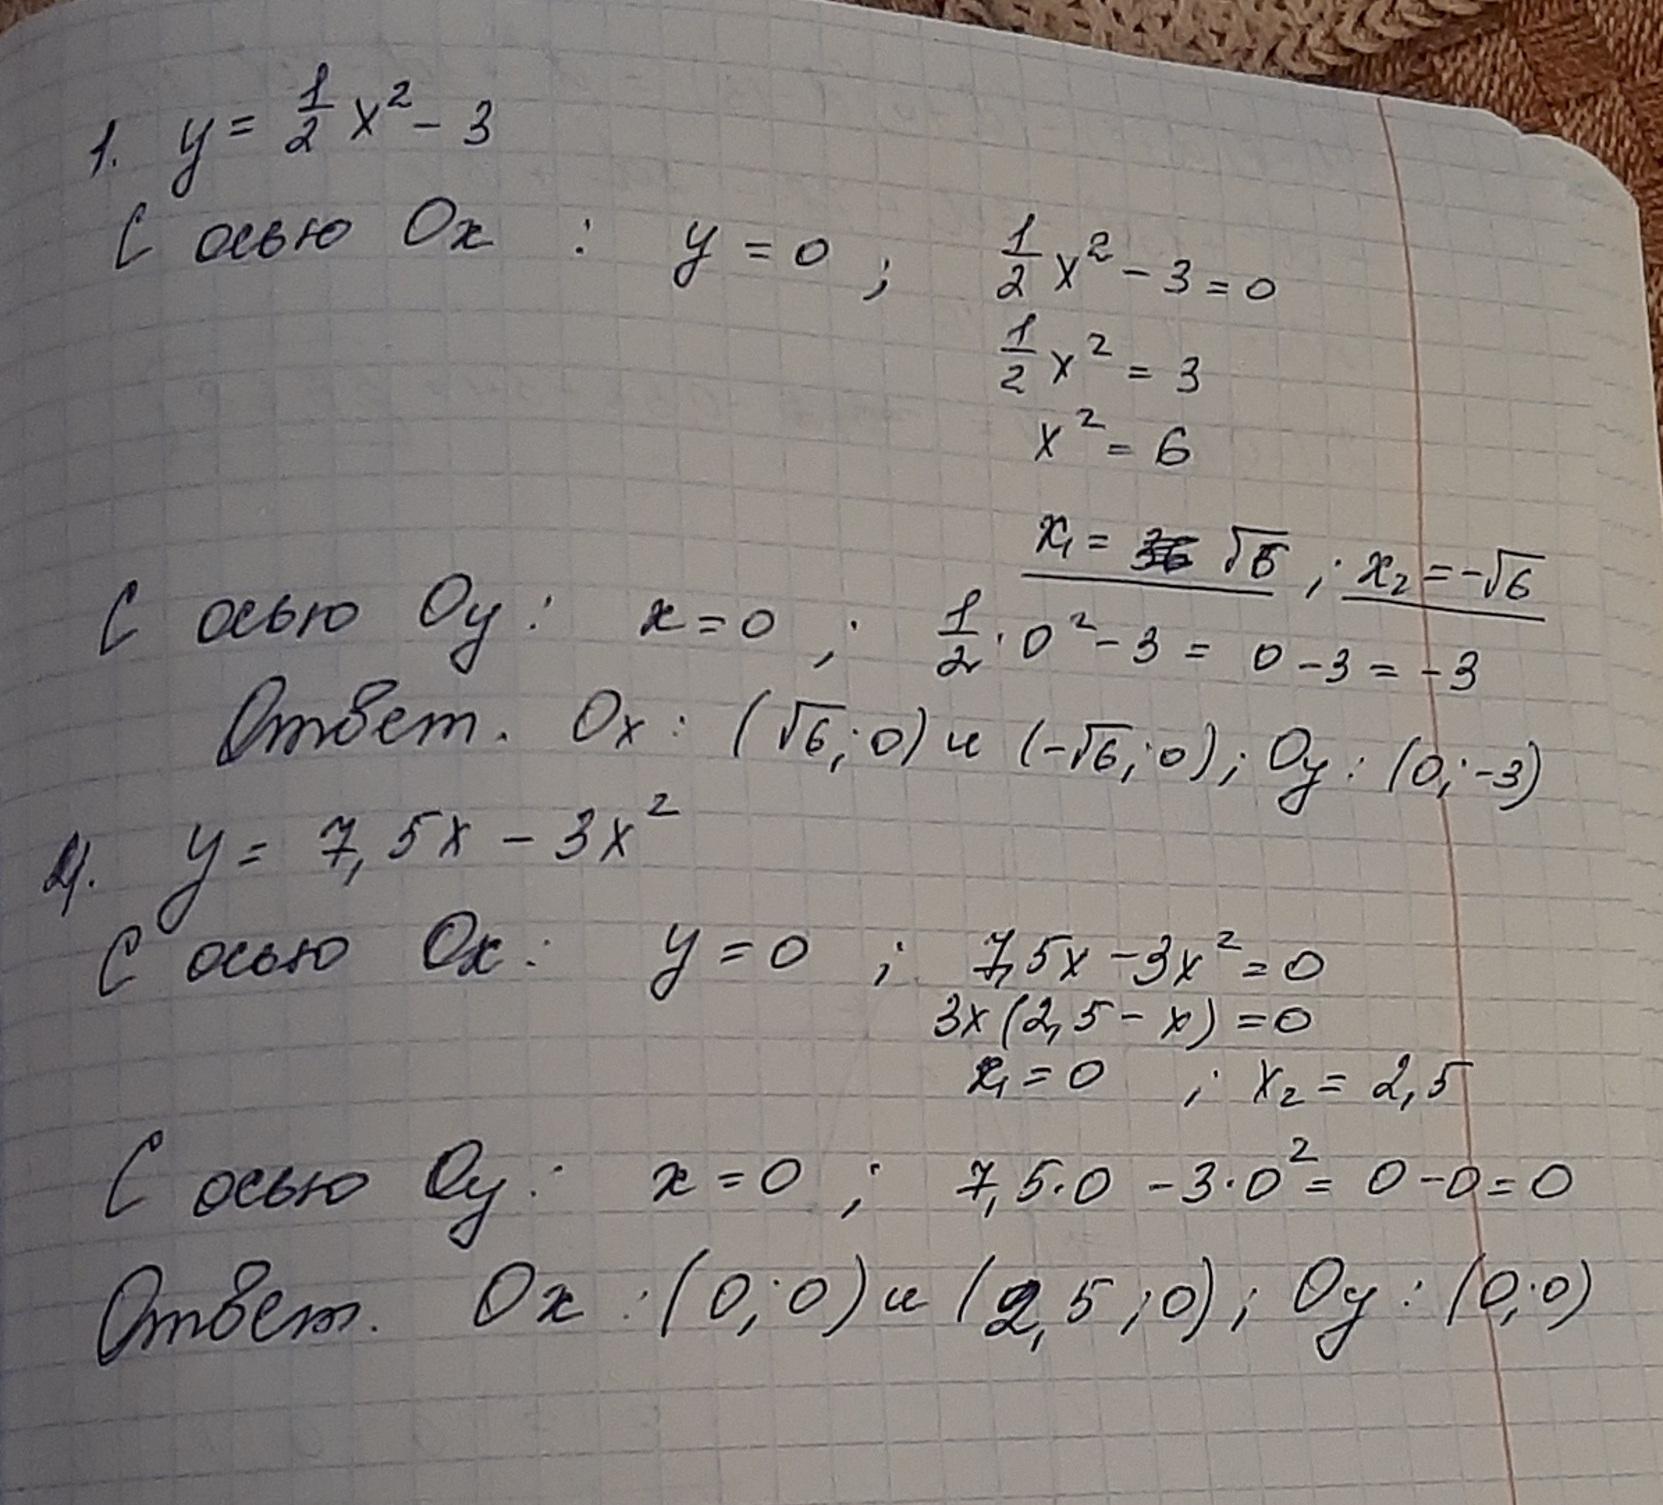 1. y = 1/2 x² - 3
С осью Ox : y = 0 ; 1/2 x² - 3 = 0
1/2 x² = 3
x² = 6
x₁ = √6 ; x₂ = -√6
С осью Oy : x = 0 ; 1/2 · 0² - 3 = 0 - 3 = -3
Ответ. Ox : (√6; 0) и (-√6; 0) ; Oy : (0; -3)
y = 7,5x - 3x²
С осью Ox : y = 0 ; 7,5x - 3x² = 0
3x(2,5 - x) = 0
x₁ = 0 ; x₂ = 2,5
С осью Oy : x = 0 ; 7,5·0 - 3·0² = 0 - 0 = 0
Ответ. Ox : (0; 0) и (2,5; 0) ; Oy : (0; 0)